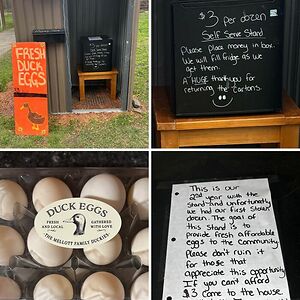 FRESH
DUCK
EGGS
$3 per dozen
Self Serve Stand
Please Place money in box.
We will fill fridge as we
get them.
A HUGE thankyou for
returning the Cartons.
DUCK EGGS
FRESH
AND LOCAL
GATHERED
WITH LOVE
THE MELLOTT FAMILY DUCKIES
This is our
2nd year with the
stand and unfortunatly
we had our first stolen
dozen. The goal of
this stand is to
provide fresh affordable
eggs to the community.
Please don't ruin it
for those that
appreciate this opportunity.
If you can't afford
$3 come to the house.